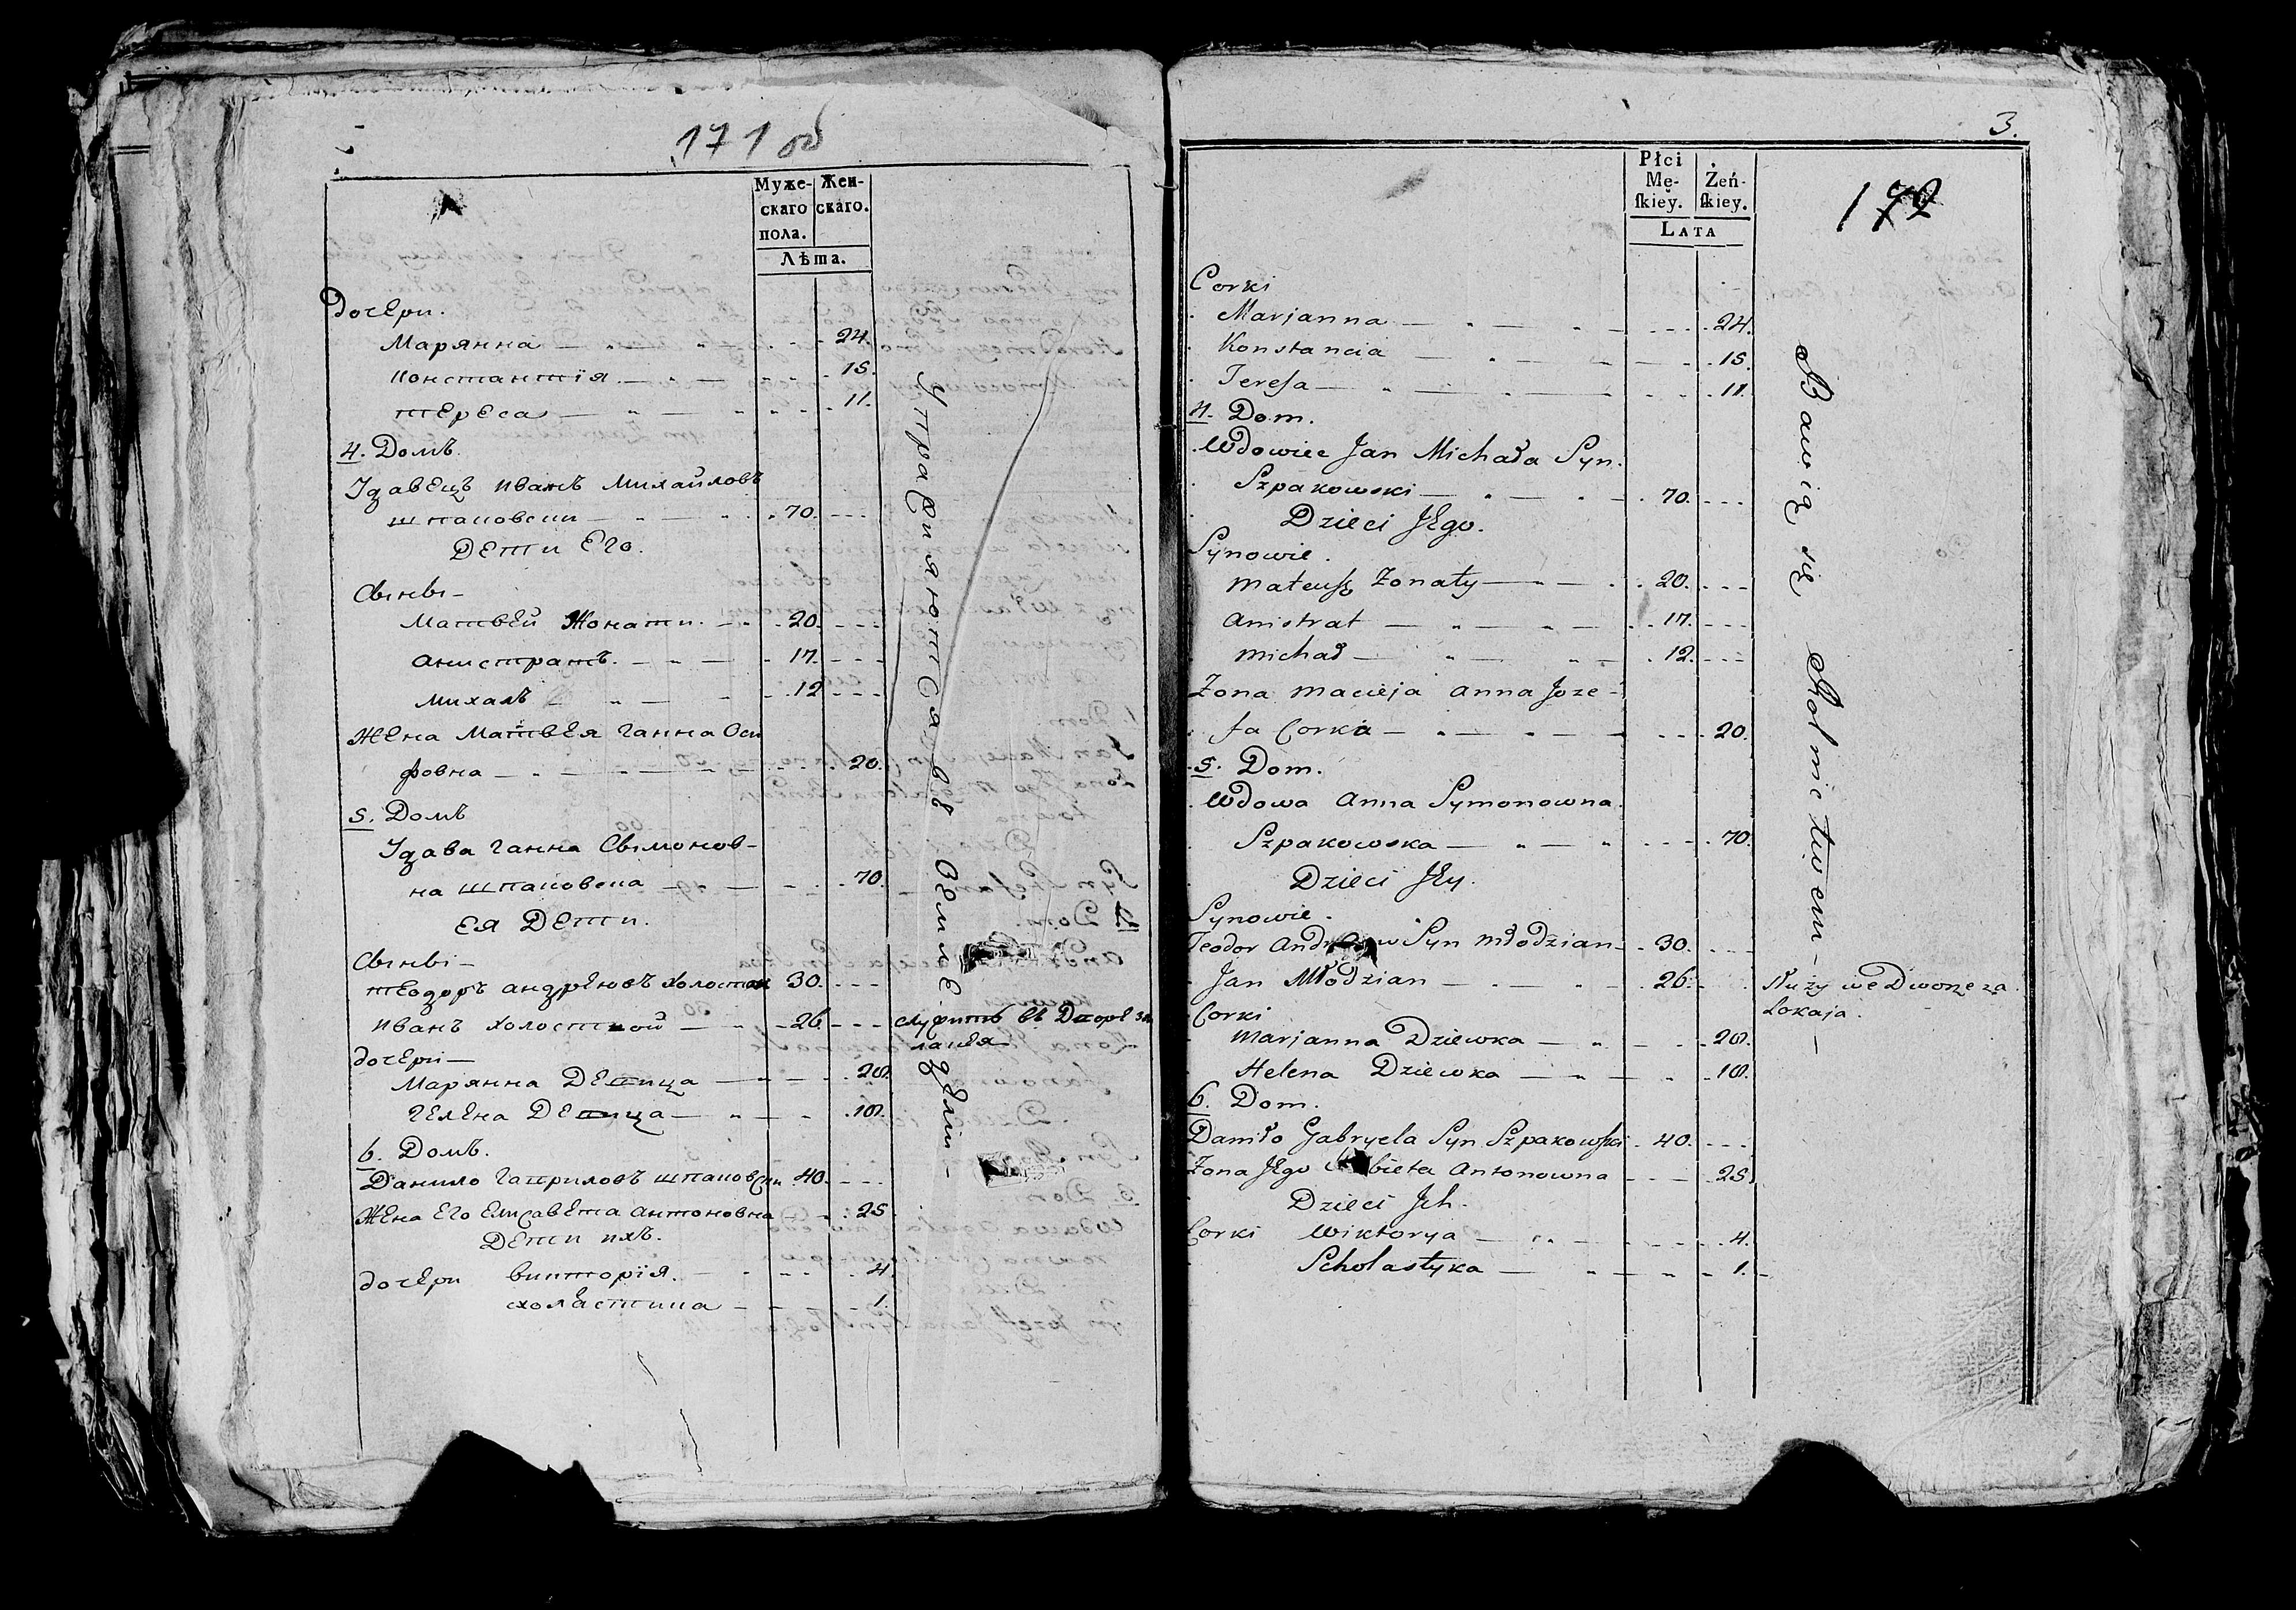 171 об
Муже-
скаго
пола.
Жен-
скаго.
Лѣта.
Дочери.
Марянна — 24.
Константія — 15.
Тереса — 11.
4. Домъ.
Удавецъ Иванъ Михайловъ
Шпаковски — 70.
Дети Его.
Сыны —
Матвей Жонати. 20.
Анистратъ. 17.
Михалъ 12
Жена Матвея Ганна Оси
фовна — 20.
5. Домъ
Удава Ганна Сымонов-
на Шпаковска — 70.
Ея Дети.
Сыны —
Теодоръ Андреювъ Холостои 30.
Иванъ Холостой — 26
Служитъ въ Дворе за
лакея
Дочери —
Марянна Девица — 20.
Гелена Девица — 10.
6. Домъ.
Данило Гаприловъ Шпаковски 40.
Жена Его Елисавета Антоновна 25
Дети ихъ.
Дочери Викторія. 4
Схоластика — 1.
Упражняются въ Земледелии —
3.
172
Płci
Mę-
ſkiey.
Żeń-
ſkiey.
LATA
Corki
Marjanna — 24.
Konstancia — 15.
Tereſa — 11.
4. Dom.
Wdowiec Jan Michała Syn.
Szpakowski — 70.
Dzieci Jego.
Synowie.
Mateuſz Zonaty — 20.
Anistrat — 17.
Michał — 12.
Zona Macieja Anna Joze-
fa Corka — 20.
5. Dom.
Wdowa Anna Symonowna
Szpakowska — 70.
Dzieci Jey.
Synowie.
Teodor Syn Młodzian 30.
Jan Młodzian — 26.
Służy we Dworze za
Lokaja.
Corki
Marjanna Dziewka — 20.
Helena Dziewka — 10.
6. Dom.
Daniło Gabryela Syn Szpakowſki 40.
Zona Jego Antonowna 25
Dzieci Jch.
Corki Wiktorya 4.
Scholastyka — 1.
Bawią się Rolnictwem —